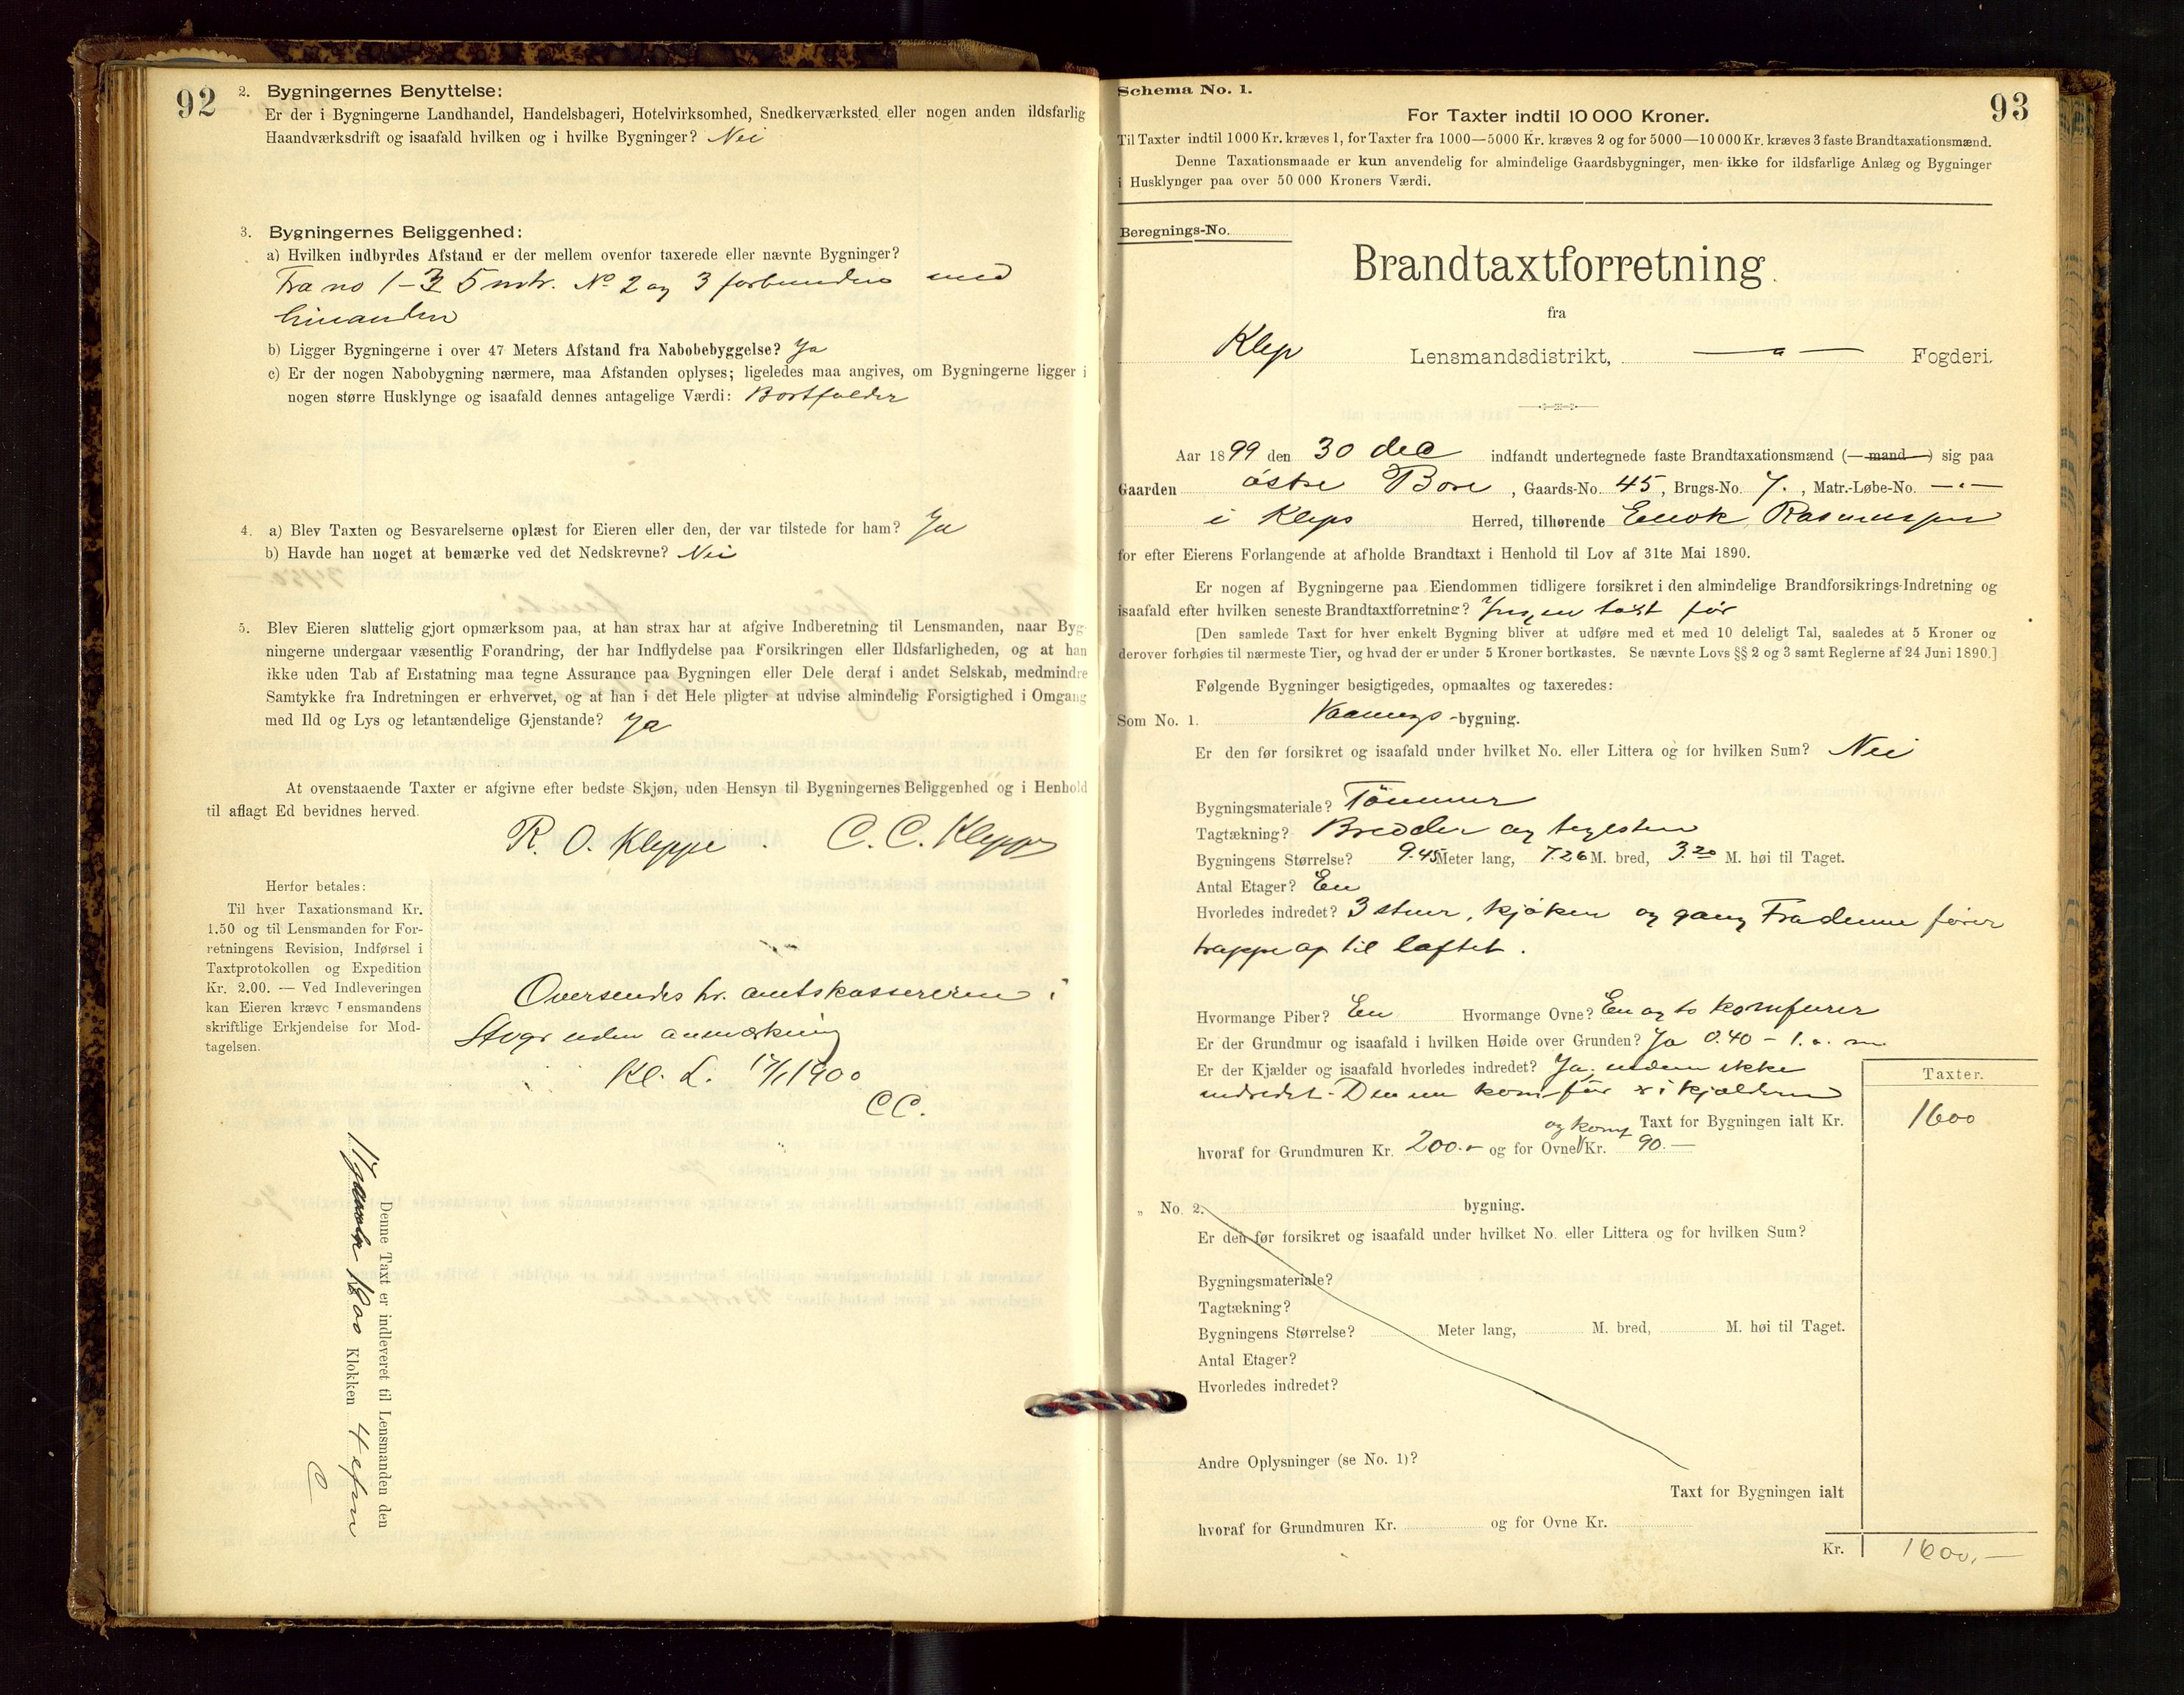 92
2. Bygningernes Benyttelse:
Er der i Bygningerne Landhandel, Handelsbageri, Hotelvirksomhed, Snedkerværksted eller nogen anden ildsfarlig
Haandværksdrift og isaafald hvilken og i hvilke Bygninger? Nei
3. Bygningernes Beliggenhed:
a) Hvilken indbyrdes Afstand er der mellem ovenfor taxerede eller nævnte Bygninger?
Fra no 1-3 5 mtr. No 2 og 3 forbundne med
hinanden
b) Ligger Bygningerne i over 47 Meters Afstand fra Nabobebyggelse? Ja
c) Er der nogen Nabobygning nærmere, maa Afstanden oplyses; ligeledes maa angives, om Bygningerne ligger i
nogen større Husklynge og isaafald dennes antagelige Værdi: Bortfalder
4. a) Blev Taxten og Besvarelserne oplæst for Eieren eller den, der var tilstede for ham? Ja
b) Havde han noget at bemærke ved det Nedskrevne? Nei
5. Blev Eieren sluttelig gjort opmærksom paa, at han strax har at afgive Indberetning til Lensmanden, naar Byg-
ningerne undergaar væsentlig Forandring, der har Indflydelse paa Forsikringen eller Ildsfarligheden, og at han
ikke uden Tab af Erstatning maa tegne Assurance paa Bygningen eller Dele deraf i andet Selskab, medmindre
Samtykke fra Indretningen er erhvervet, og at han i det Hele pligter at udvise almindelig Forsigtighed i Omgang
med Ild og Lys og letantændelige Gjenstande? Ja
At ovenstaaende Taxter er afgivne efter bedste Skjøn, uden Hensyn til Bygningernes Beliggenhed og i Henhold
til aflagt Ed bevidnes herved.
R. O. Kleppe. C. C. Kleppe
Herfor betales:
Til hver Taxationsmand Kr.
1.50 og til Lensmanden for For-
retningens Revision, Indførsel i
Taxtprotokollen og Expedition
Kr. 2.00. — Ved Indleveringen
kan Eieren kræve Lensmandens
skriftlige Erkjendelse for Mod-
tagelsen.
Oversendes hr. amtskassereren i
Stvgr uden anmærkning
Kl. L. 17/1 1900
CC.
Denne Taxt er indleveret til Lensmanden den
17 1900 Klokken 4 efm
Schema No. 1.
93
For Taxter indtil 10 000 Kroner.
Til Taxter indtil 1000 Kr. kræves 1, for Taxter fra 1000—5000 Kr. kræves 2 og for 5000—10 000 Kr. kræves 3 faste Brandtaxationsmænd.
Denne Taxationsmaade er kun anvendelig for almindelige Gaardsbygninger, men ikke for ildsfarlige Anlæg og Bygninger
i Husklynger paa over 50 000 Kroners Værdi.
Beregnings-No.
Brandtaxtforretning
fra
Klep Lensmandsdistrikt, — " — Fogderi.
Aar 1899 den 30 dec indfandt undertegnede faste Brandtaxationsmænd (—mand—) sig paa
Gaarden østre Bore, Gaards-No. 45, Brugs-No. 7., Matr.-Løbe-No. — " —
i Klepp Herred, tilhørende Enok Rasmussen
for efter Eierens Forlangende at afholde Brandtaxt i Henhold til Lov af 31te Mai 1890.
Er nogen af Bygningerne paa Eiendommen tidligere forsikret i den almindelige Brandforsikrings-Indretning og
isaafald efter hvilken seneste Brandtaxtforretning? Ingen taxt før
[Den samlede Taxt for hver enkelt Bygning bliver at udføre med et med 10 deleligt Tal, saaledes at 5 Kroner og
derover forhøies til nærmeste Tier, og hvad der er under 5 Kroner bortkastes. Se nævnte Lovs §§ 2 og 3 samt Reglerne af 24 Juni 1890.]
Følgende Bygninger besigtigedes, opmaaltes og taxeredes:
Som No. 1. Vaanings-bygning.
Er den før forsikret og isaafald under hvilket No. eller Littera og for hvilken Sum? Nei
Bygningsmateriale? Tömmer
Tagtækning? Bredder og teglsten
Bygningens Størrelse? 9.45 Meter lang, 7.26 M. bred, 3.20 M. høi til Taget.
Antal Etager? En
Hvorledes indredet? 3 stuer, kjøken og gang Fra denne fører
trappe op til loftet.
Hvormange Piber? En Hvormange Ovne? En og to komfurer
Er der Grundmur og isaafald i hvilken Høide over Grunden? Ja 0.40 - 1.0. m.
Er der Kjælder og isaafald hvorledes indredet? Ja, men ikke
indredet. Den ene komfur er i kjælderen
Taxter.
Taxt for Bygningen ialt Kr. 1600
hvoraf for Grundmuren Kr. 200.- og for Ovne og komf Kr. 90.—
„ No. 2. bygning.
Er den før forsikret og isaafald under hvilket No. eller Littera og for hvilken Sum?
Bygningsmateriale?
Tagtækning?
Bygningens Størrelse? Meter lang, M. bred, M. høi til Taget.
Antal Etager?
Hvorledes indredet?
Andre Oplysninger (se No. 1)?
Taxt for Bygningen ialt
hvoraf for Grundmuren Kr. og for Ovne Kr.
Kr. 1600,—